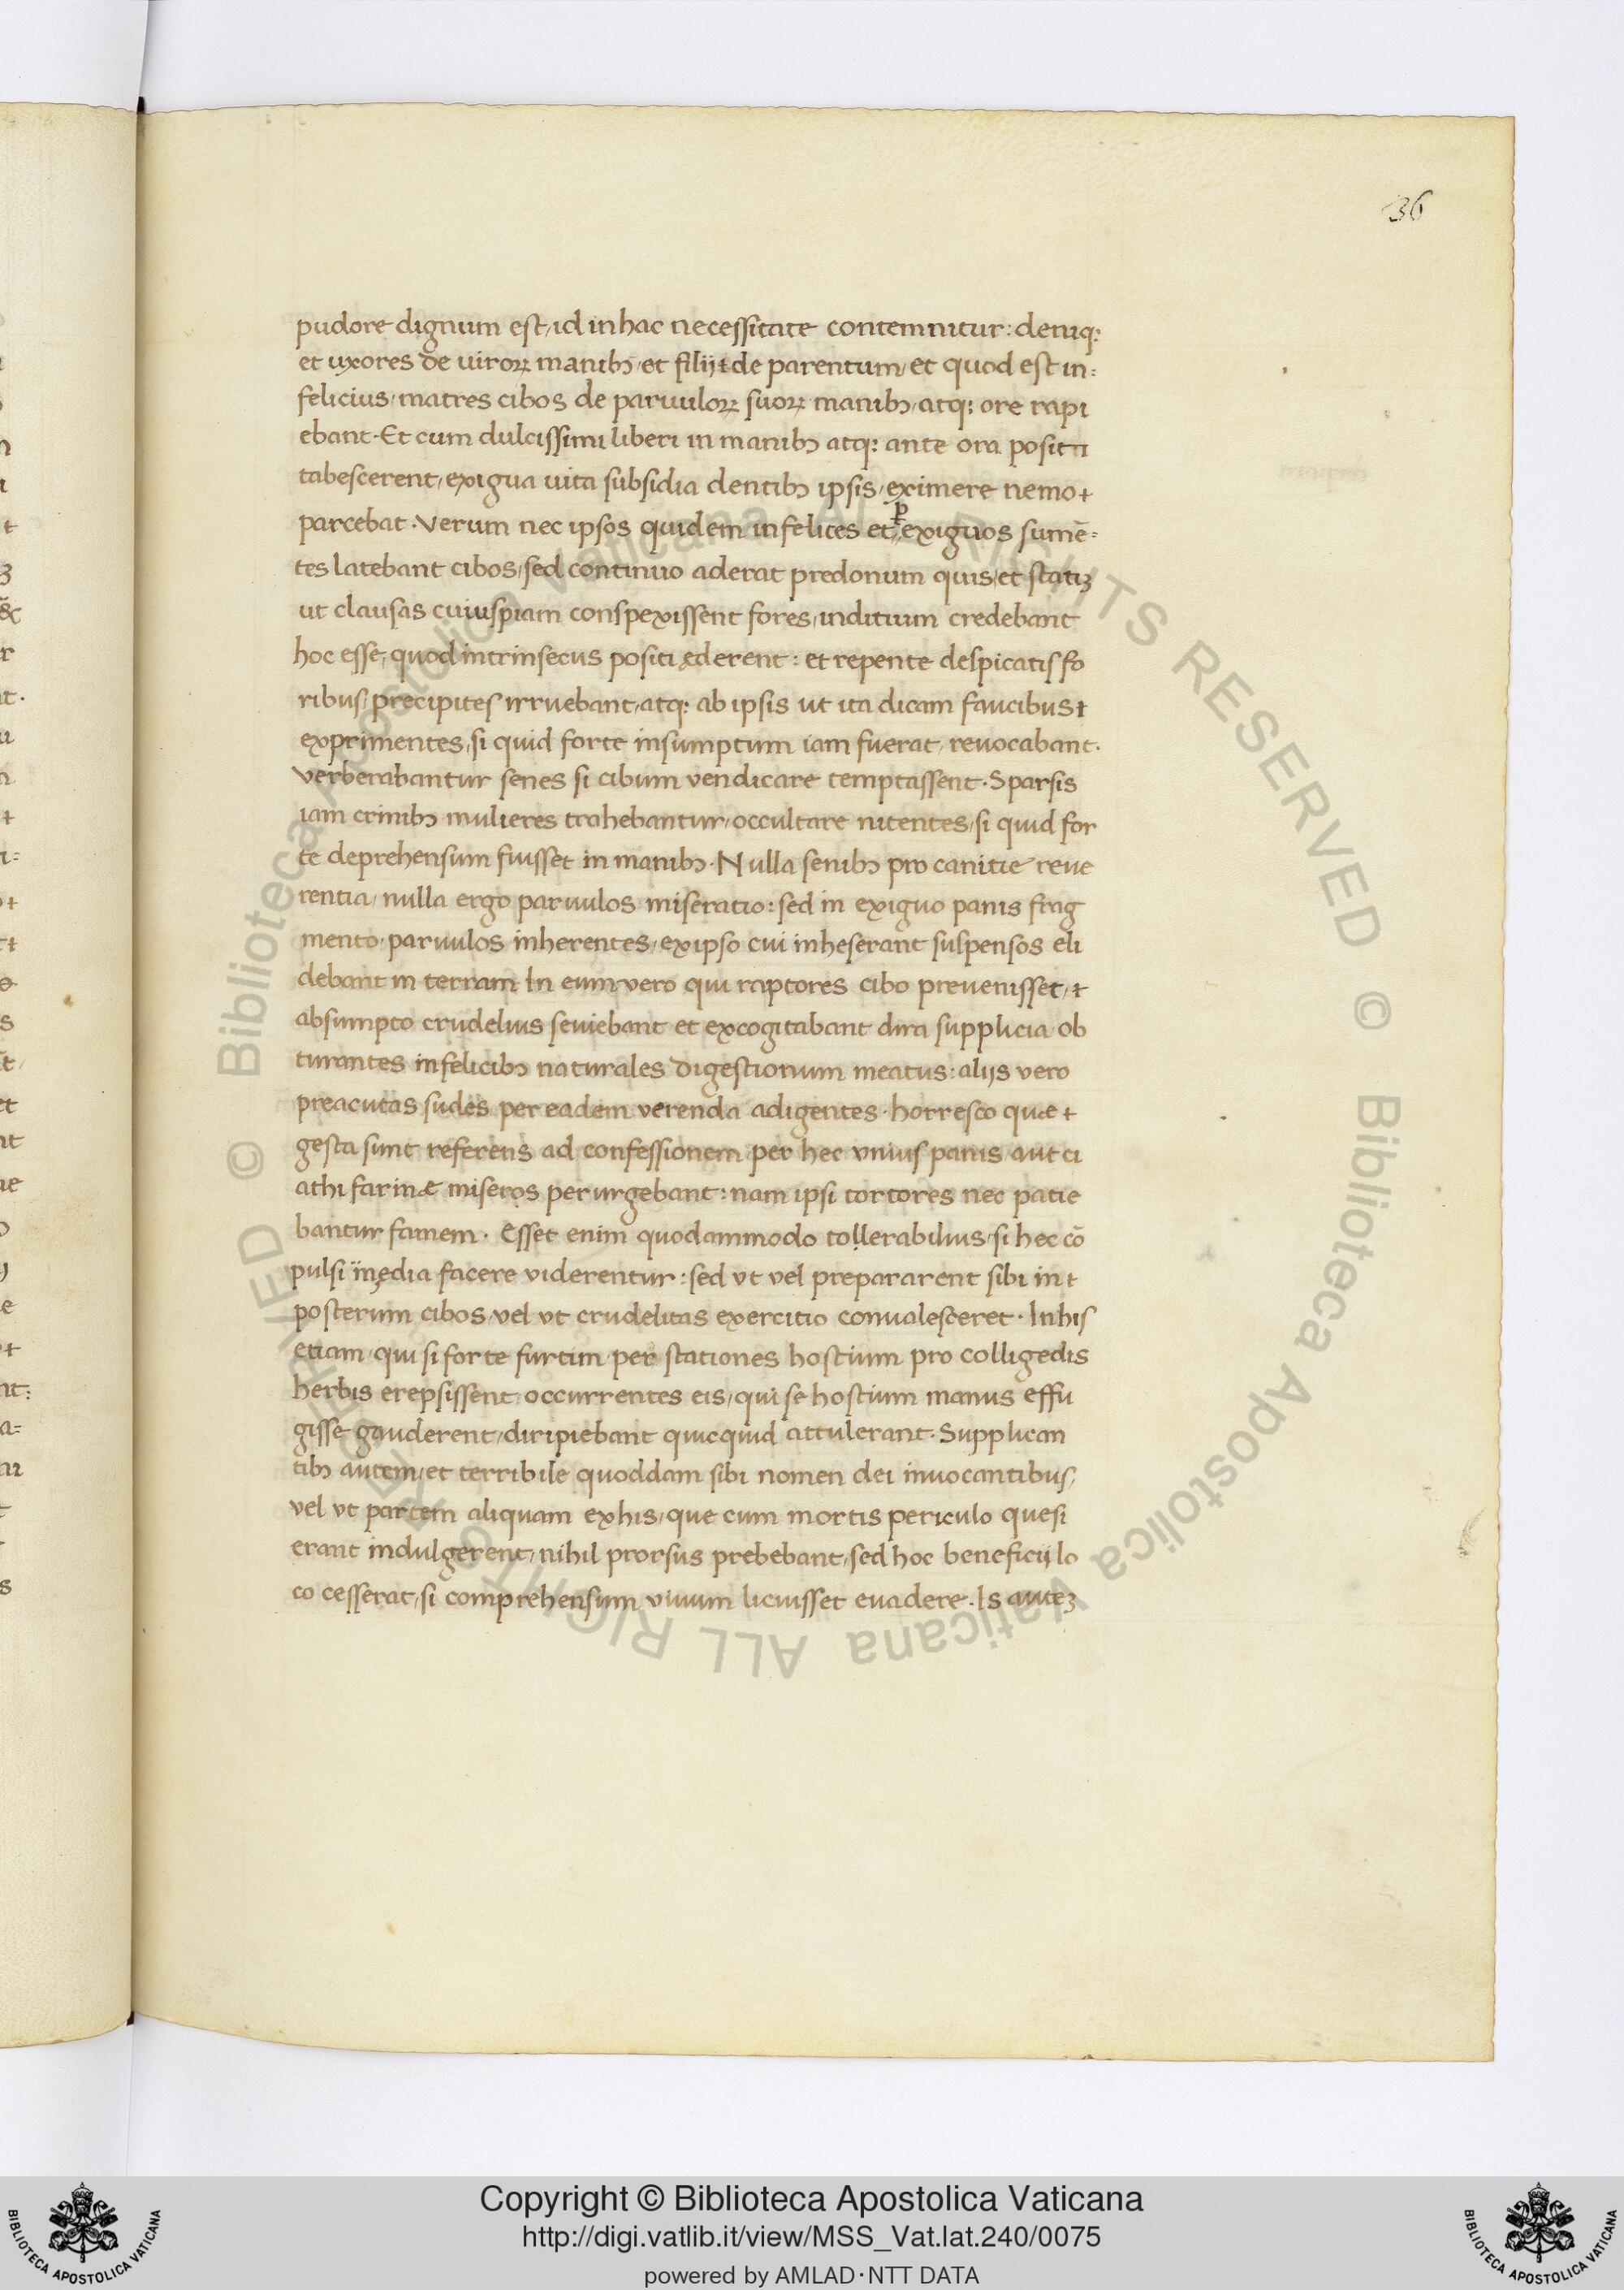 36
pudore dignum est, id in hac necessitate contemnitur: deniq;
et uxores de uiroꝝ manibꝫ, et filij de parentum, et quod est in=
felicius, matres cibos de paruuloꝝ suoꝝ manibꝫ, atq; ore rapi
ebant. Et cum dulcissimi liberi in manibꝫ atq; ante ora positi
tabescerent, exigua uita subsidia dentibꝫ ipsis, eximere nemo
parcebat. Verum nec ipsos quidem infelices et ꝑ exiguos sumē=
tes latebant cibos, sed continuo aderat predonum quis, et statiꝫ
ut clausas cuiuspiam conspexissent fores, inditium credebant
hoc esse, quod intrinsecus positi ęderent: et repente despicatis fo
ribus precipites irruebant, atq; ab ipsis ut ita dicam faucibus
exprimentes, si quid forte insumptum iam fuerat, reuocabant.
Verberabantur senes si cibum vendicare temptassent. Sparsis
iam crinibꝫ mulieres trahebantur, occultare nitentes, si quid for
te deprehensum fuisset in manibꝫ. Nulla senibꝫ pro canitie reue
rentia, nulla ergo paruulos miseratio: sed in exiguo panis frag
mento paruulos inherentes, ex ipso cui inheserant suspensos eli
debant in terram. In eum vero qui raptores cibo preuenisset,
absumpto crudelius seuiebant et excogitabant dira supplicia, ob
turantes infelicibꝫ naturales digestionum meatus: alijs vero
preacutas sudes per eadem verenda adigentes. horresco quæ
gesta sunt referens ad confessionem per hec unius panis, aut ci
athi farinæ miseros perurgebant: nam ipsi tortores nec patie
bantur famem. Esset enim quodammodo tollerabilius, si hec cō
pulsi inędia facere viderentur: sed ut vel prepararent sibi in
posterum cibos, vel ut crudelitas exercitio conualesceret. In his
etiam, qui si forte furtim per stationes hostium pro colligedis
herbis erepsissent occurrentes eis, qui se hostium manus effu
gisse gauderent, diripiebant quicquid attulerant. Supplican
tibꝫ autem, et terribile quoddam sibi nomen dei inuocantibus,
vel ut partem aliquam ex his, que cum mortis periculo quesi
erant indulgerent, nihil prorsus prebebant, sed hoc beneficij lo
co cesserat, si comprehensum viuum licuisset euadere. Is auteꝫ
© Biblioteca Apostolica Vaticana ALL RIGHTS RESERVED © Biblioteca Apostolica Vaticana ALL RIGHTS RESERVED
Copyright © Biblioteca Apostolica Vaticana
http://digi.vatlib.it/view/MSS_Vat.lat.240/0075
powered by AMLAD·NTT DATA
BIBLIOTECA APOSTOLICA VATICANA
BIBLIOTECA APOSTOLICA VATICANA